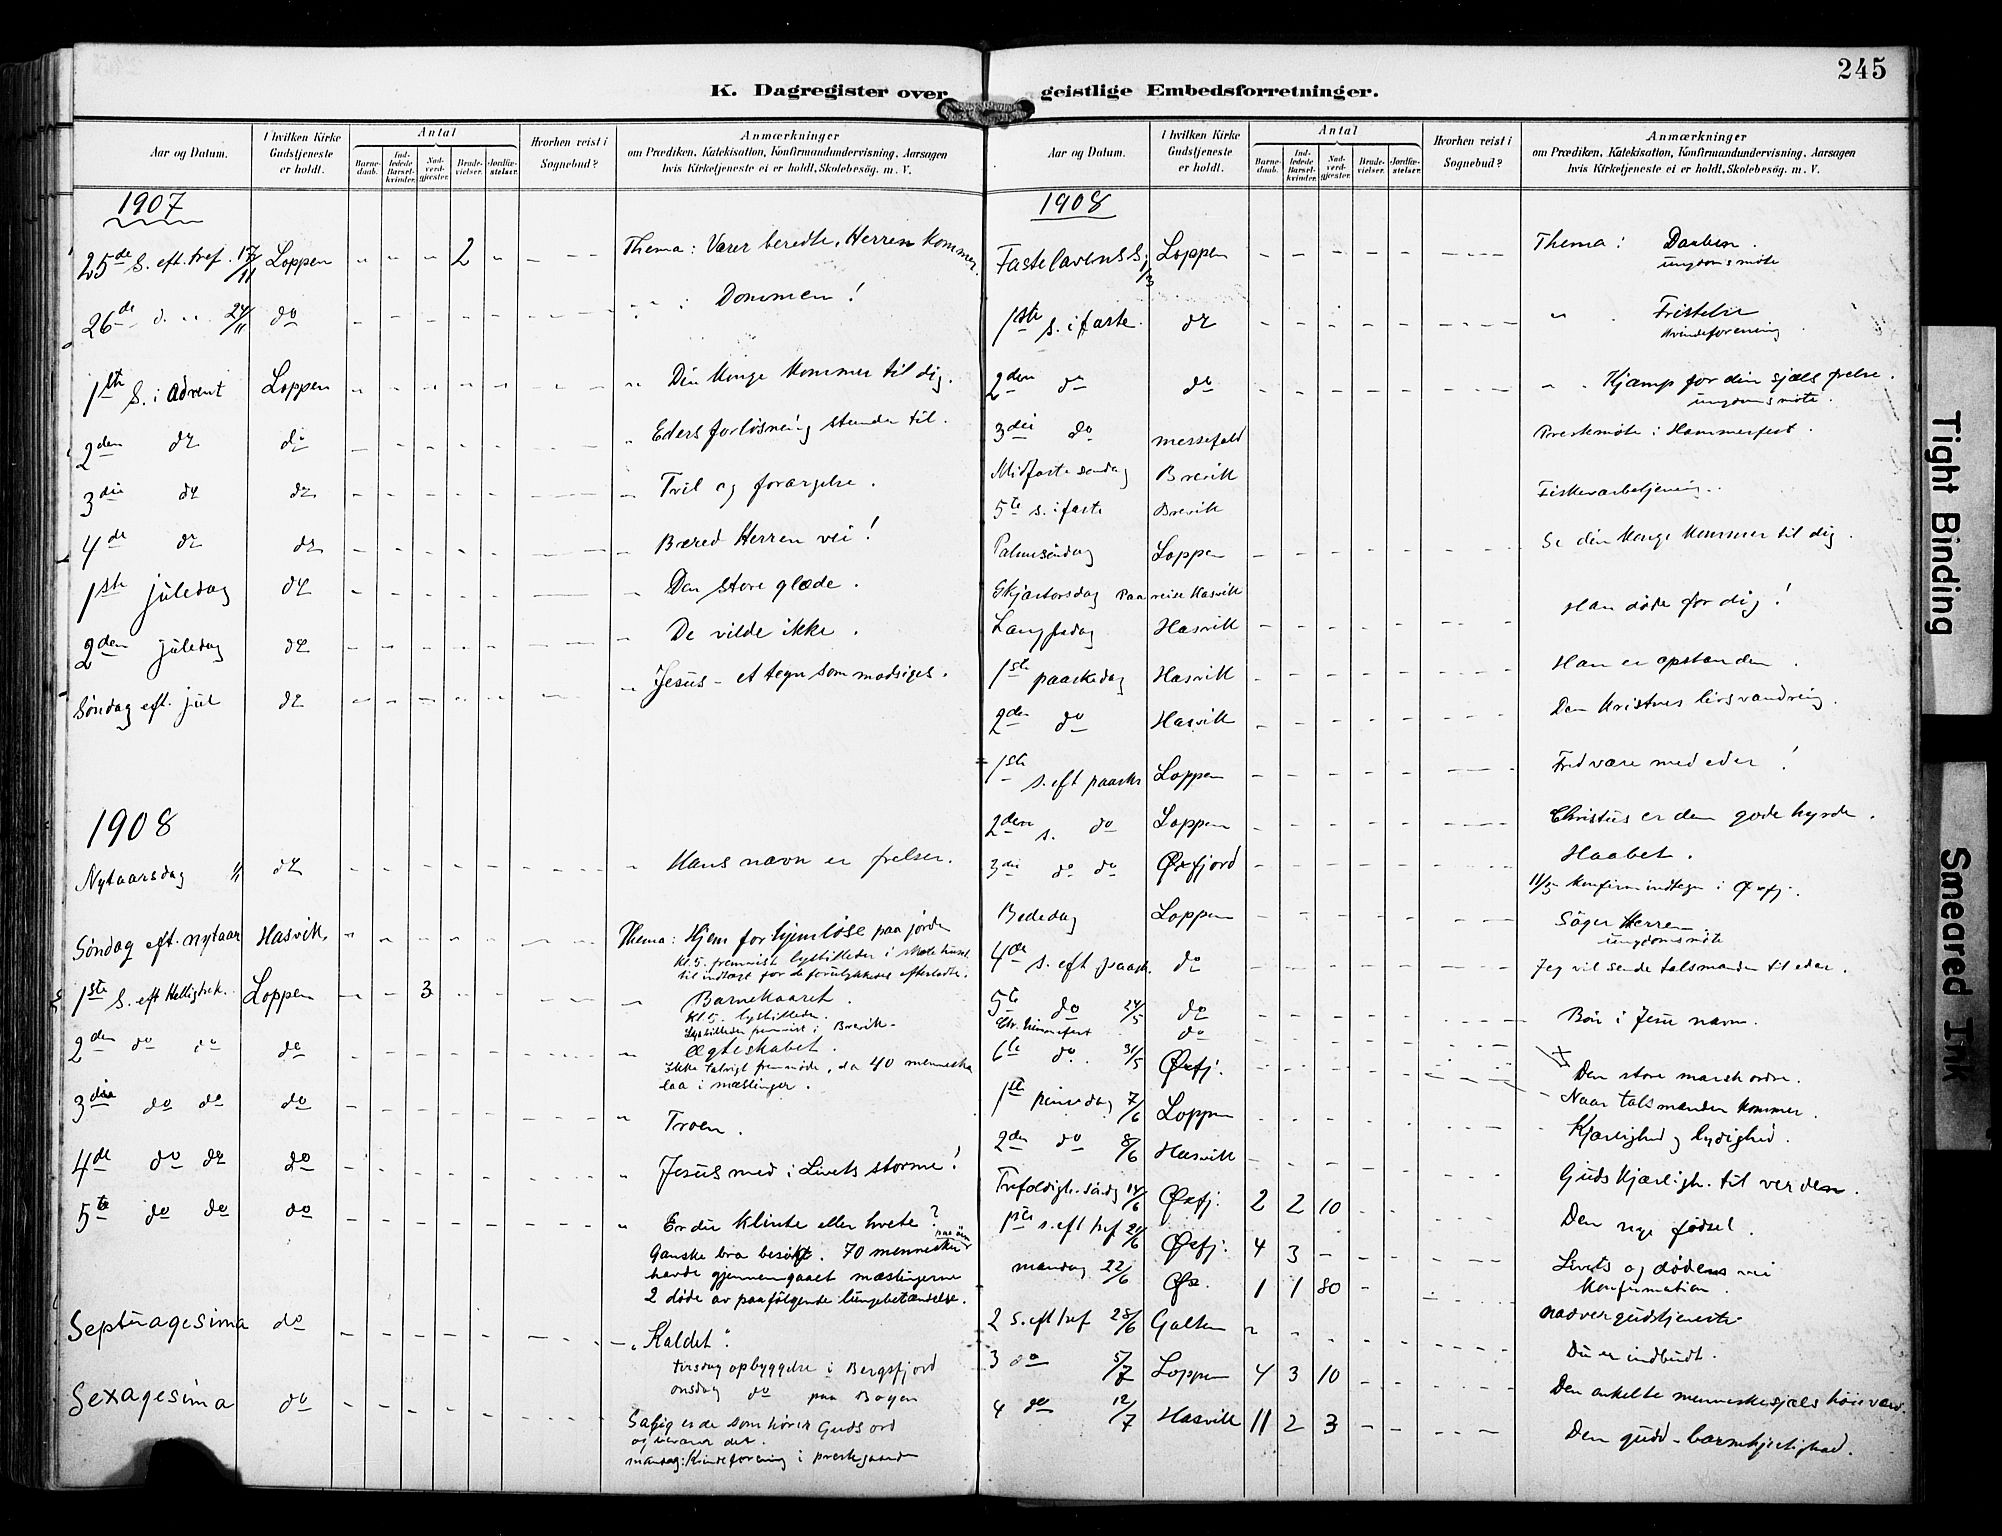 245
K. Dagregister over geistlige Embedsforretninger.
Aar og Datum.
I hvilken Kirke Gudstjeneste er holdt.
Antal
Barnedaab.
Indledede Barselkvinder.
Nadverdgjester.
Brudevielser.
Jordfæstelser.
Hvorhen reist i Sognebud?
Anmærkninger
om Prædiken, Katekisation, Konfirmandundervisning, Aarsagen
hvis Kirketjeneste ei er holdt, Skolebesøg. m. V.
1907
25de S. eft. tref. 17/11 Loppen " " " 2 " Thema: Værer beredte, Herren kommer
26de d. " 24/11 do " " : Dommen!
1ste S. i Advent Loppen " Din Konge kommer til dig.
2den do do " Eders forløsning stunder til.
3die do do " Tvil og forargelse.
4de do do " Bered Herren vei!
1ste juledag do " Den store glæde.
2den juledag do " De vilde ikke.
Søndag eft. jul do " Jesus - et tegn som modsiges.
1908
Nytaarsdag 1/1 do " Hans navn er frelser.
Søndag eft. nytaar Hasvik. Thema: Hjem for hjemløse paa jorden
kl. 5. fremvist lysbilleder i skolehuset
til indtægt for de forulykkedes efterladte.
1ste S. eft Helligtrek. Loppen 3 " Barnekaaret.
Kl. 5. lysbilleder.
Lysbilleder fremvist i Brevik.
2den do do do " Ægteskabet.
Ikke talrigt fremmøde, da 40 menneske
laa i mæslinger.
3die do do do " Troen.
4de do do do " Jesus med i Livets storme!
5te do do do " Er du klinte eller hvete?
Ganske bra besøkt. 70 mennesker paa øen
havde gjennemgaaet mæslingerne
2 døde av paafølgende lungebetændelse.
Septuagesima do " Kaldet".
tirsdag opbyggelse i Bergsfjord
onsdag do paa Bøgen
Sexagesima do Salig er de som hører Guds ord
og bevarer det.
mandag: Kvindeforening i prestegaarden
Aar og Datum.
I hvilken Kirke Gudstjeneste er holdt.
Antal
Barnedaab.
Indledede Barselkvinder.
Nadverdgjester.
Brudevielser.
Jordfæstelser.
Hvorhen reist i Sognebud?
Anmærkninger
om Prædiken, Katekisation, Konfirmandundervisning, Aarsagen
hvis Kirketjeneste ei er holdt, Skolebesøg. m. V.
1908
Fastelavens S. 1/3 Loppen Thema: Daaben.
ungdomsmøte
1ste S. i faste. do " Fristelse
Kvindeforening
2den do do " Kjæmp for din sjæls frelse.
ungdomsmøte.
3die do messefald Prestemøte i Hammerfest.
Midfaste søndag Brevik
5te s. i faste Brevik Fiskeværbetjening.
Palmesøndag Loppen Se din Konge kommer til dig.
Skjærtorsdag paa reise Hasvik
Langfredag Hasvik Han døde for dig!
1ste paaskedag Hasvik Han er opstanden.
2den do Hasvik Den Kristnes livsvandring.
1ste s. eft paaske Loppen Fred være med eder!
2den s. do Loppen Christus er den gode hyrde.
3die do do Øxfjord Haabet.
11/5 konfirm indtegn i Øxfj.
Bededag Loppen Søger Herren
ungdomsmøte
4de s. eft paask. do Jeg vil sende talsmanden til eder.
5te do 24/5 do Bøn i Jesu navn.
Chr. himmelfart do
6te do. 31/5 Øxfj. Den store marsk ordre.
1ste pinsedag 7/6 Loppen Naar talsmanden kommer.
2den do 8/6 Hasvik Kjærlighed og lydighed.
Trefoldigh. søndag 14/6 Øxfj. 2 2 10 Guds Kjærligh. til verden.
1ste s. eft tref 21/6 Øxfj. 4 3 - Den nye fødsel.
mandag 22/6 Øx. 1 1 80 Livets og dødens vei
Konfirmation.
nadvergudstjeneste
2 s. eft tref 28/6 Galten Du er indbudt.
3 do 5/7 Loppen 4 3 10 Den enkelte menneskesjæls høie værd.
4 do 12/7 Hasvik 11 2 3 Den gudd. barmhjertighed.
Tight Binding
Smeared Ink